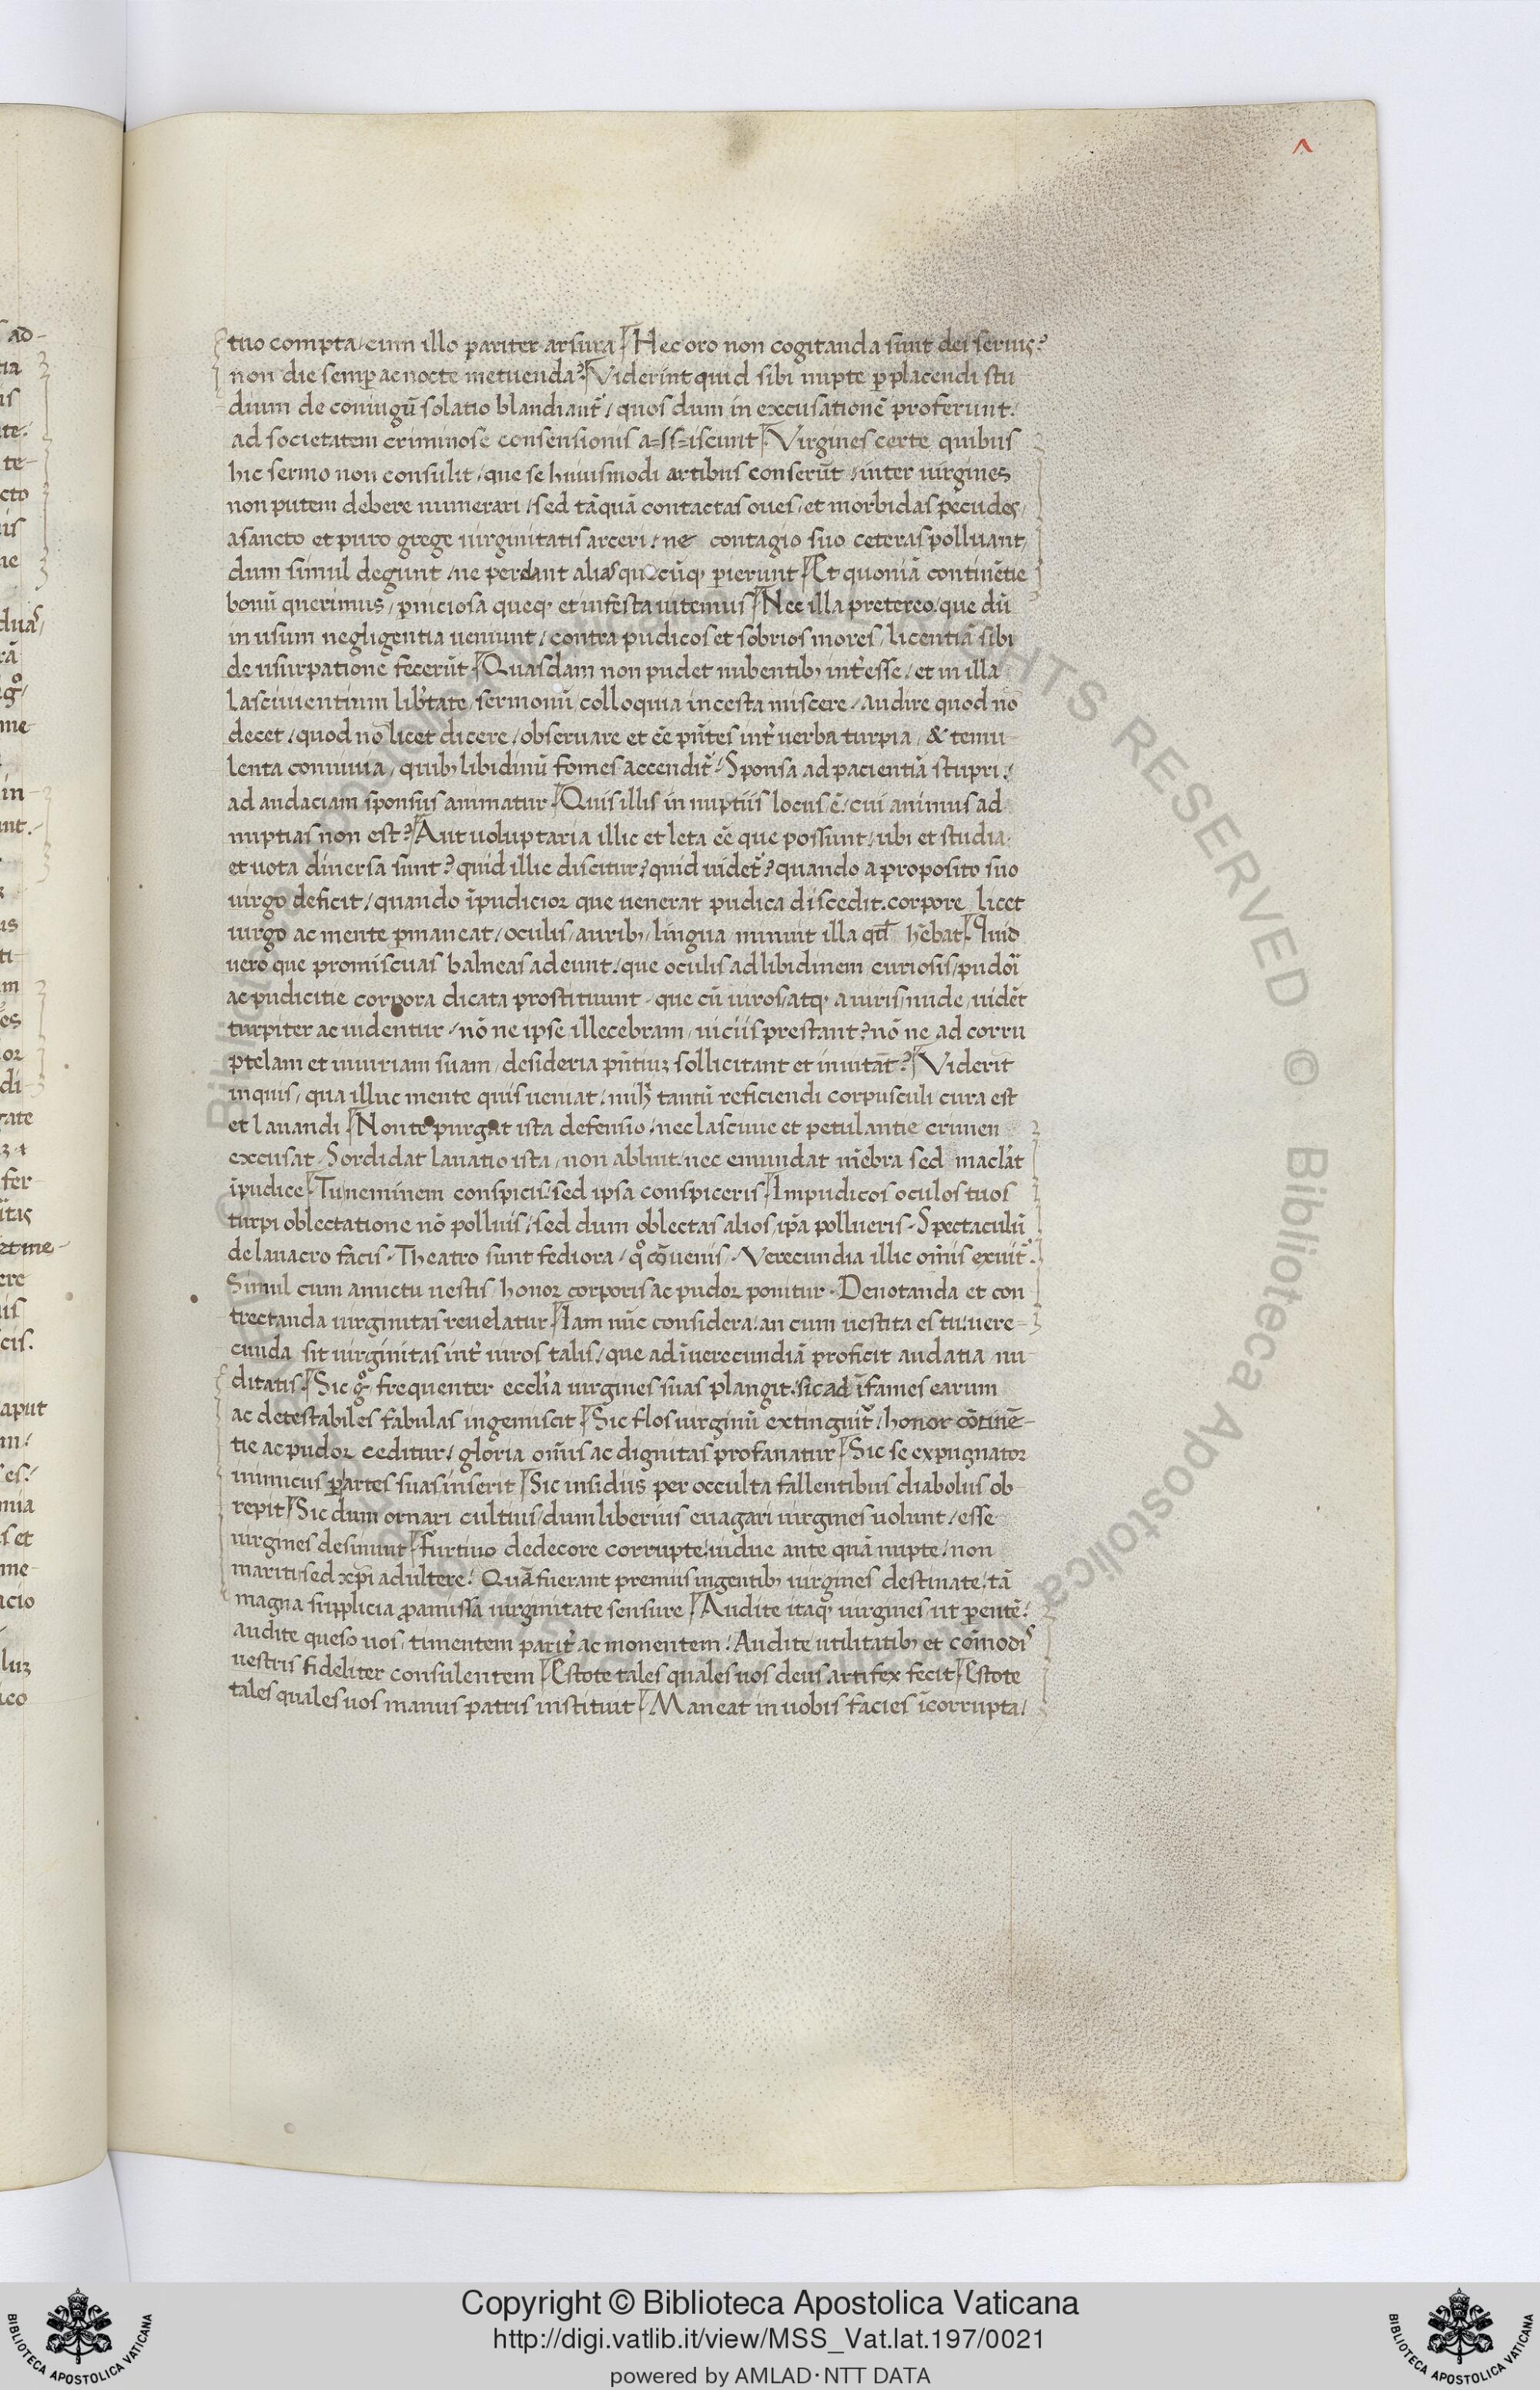 tuo compta / cum illo pariter arsura Hec oro non cogitanda sunt dei seruis?
non die semp̱ ac nocte metuenda? Viderint quid sibi nupte ꝑ placendi stu
dium de coniugũ solatio blandiant᷑ / quos dum in excusationẽ proferunt /
ad societatem criminose consensionis a=ss=iscunt Virgines certe quibus
hic sermo non consulit / que se huiusmodi artibus conserũt / inter uirgines
non putem debere numerari / sed tãquã contactas oues / et morbidas pecudes /
a sancto et puro grege uirginitatis arceri / ne contagio suo ceteras polluant /
dum simul degunt / ne perdant alias quecũqꝫ ꝑierunt Et quoniã continẽtie
bonũ querimus / ꝑniciosa queqꝫ et infesta uitemus Nec illa pretereo / que dũ
in usum negligentia ueniunt / contra pudicos et sobrios mores / licentiã sibi
de usurpatione fecerũt Quasdam non pudet nubentibꝫ int᷑esse / et in illa
lasciuientium lib᷑tate / sermonũ / colloquia incesta miscere / audire quod nõ
decet / quod nõ licet dicere / obseruare et eẽ pñtes int᷑ uerba turpia / & temu
lenta conuiuia / quibꝫ libidinũ fomes accendit᷑ / Sponsa ad pacientiã stupri /
ad audaciam sponsus animatur Quis illis in nuptiis locus ẽ / cui animus ad
nuptias non est? Aut uoluptaria illic et leta eẽ que possunt / ubi et studia
et uota diuersa sunt? quid illic discitur? quid uidet᷑? quando a proposito suo
uirgo deficit / quando ĩpudicior que uenerat pudica discedit. corpore licet
uirgo ac mente ꝑmaneat / oculis / auribꝫ / lingua / minuit illa qđ hẽbat Quid
uero que promiscuas balneas adeunt / que oculis ad libidinem curiosis / pudori
ac pudicitie corpora dicata prostituunt / que cũ uiros / atqꝫ a uiris / nude / uidẽt
turpiter ac uidentur / nõ ne ipse illecebram / uiciis prestant? nõ ne ad corru
ptelam et iniuriam suam / desideria pñtiuꝫ sollicitant et inuitãt? Viderit
inquis / qua illuc mente quis ueniat / mihi tantũ reficiendi corpusculi cura est
et lauandi Non te purgat ista defensio / nec lasciuie et petulantie crimen
excusat / Sordidat lauatio ista / non abluit / nec emundat mẽbra sed macl᷑at
ĩpudice Tu neminem conspicis / sed ipsa conspiceris Impudicos oculos tuos
turpi oblectatione nõ polluis / sed dum oblectas alios / ip̃a pollueris / Spectaculũ
de lauacro facis / Theatro sunt fediora / qͦ cõuenis / Verecundia illic om̃is exuit᷑.
Simul cum amictu uestis / honor corporis ac pudor ponitur. Denotanda et con
trectanda uirginitas reuelatur Iam nũc considera / an cum uestita es tu / uere-
cunda sit uirginitas int᷑ uiros talis / que ad ĩuerecundiã proficit audatia nu
ditatis Sic gͦ frequenter eccl᷑ia uirgines suas plangit / sic ad ĩfames earum
ac detestabiles fabulas ingemiscit Sic flos uirginũ extinguit᷑ / honor cõtinẽ-
tie ac pudor ceditur / gloria om̃is ac dignitas profanatur Sic se expugnator
inimicus ꝑ artes suas inserit Sic insidiis per occulta fallentibus diabolus ob
repit Sic dum ornari cultius / dum liberius euagari uirgines uolunt / esse
uirgines desinunt furtiuo dedecore corrupte / uidue ante quã nupte / non
mariti / sed xp̃i adultere / Quã fuerant premiis ingentibꝫ uirgines destinate / tã
magna supplicia ꝓ amissa uirginitate sensure Audite itaqꝫ uirgines / ut ꝑentẽ /
audite queso uos / timentem parit᷑ ac monentem / Audite / utilitatibꝫ et cõmodis
uestris fideliter consulentem Estote tales quales uos deus artifex fecit Estote
tales quales uos manus patris instituit Maneat in uobis facies ĩcorrupta /
Copyright © Biblioteca Apostolica Vaticana
http://digi.vatlib.it/view/MSS_Vat.lat.197/0021
powered by AMLAD·NTT DATA
BIBLIOTECA APOSTOLICA VATICANA
BIBLIOTECA APOSTOLICA VATICANA